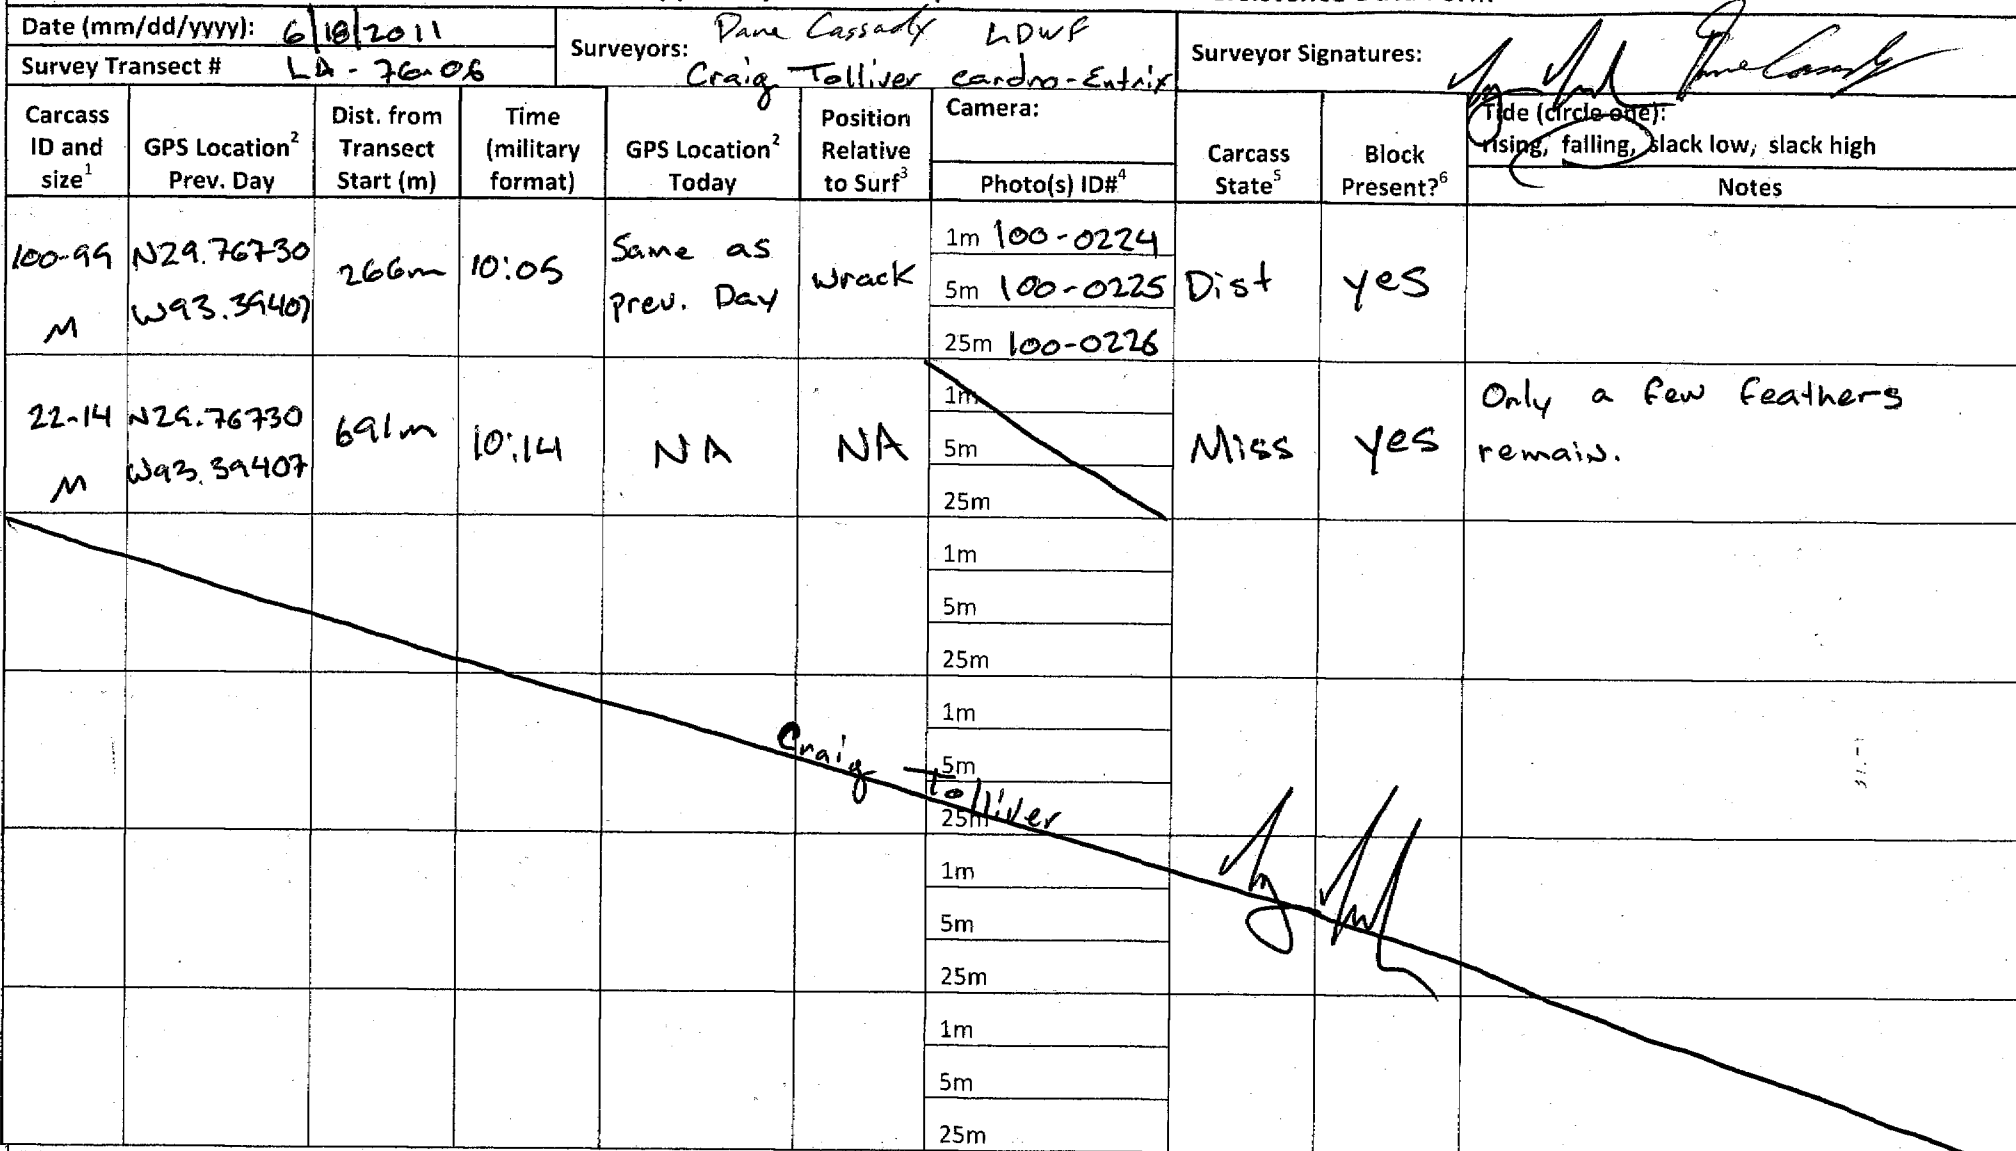 Date (mm/dd/yyyy): 6/18/2011
Survey Transect # LA-76-06
Surveyors: Dane Cassady LDWF
Craig Tolliver cardno-Entrix
Surveyor Signatures:
Carcass ID and size1
GPS Location2 Prev. Day
Dist. from Transect Start (m)
Time (military format)
GPS Location2 Today
Position Relative to Surf3
Camera:
Photo(s) ID#4
Carcass State5
Block Present?6
Tide (circle one):
rising, falling, slack low, slack high
Notes
100-99
M
N29.76730
W93.39407
266m
10:05
Same as
prev. Day
wrack
1m 100-0224
5m 100-0225
25m 100-0226
Dist
yes
22-14
M
N29.76730
W93.39407
691m
10:14
NA
NA
1m
5m
25m
Miss
yes
Only a few feathers
remain.
1m
5m
25m
1m
5m
25m
Craig Tolliver
1m
5m
25m
1m
5m
25m